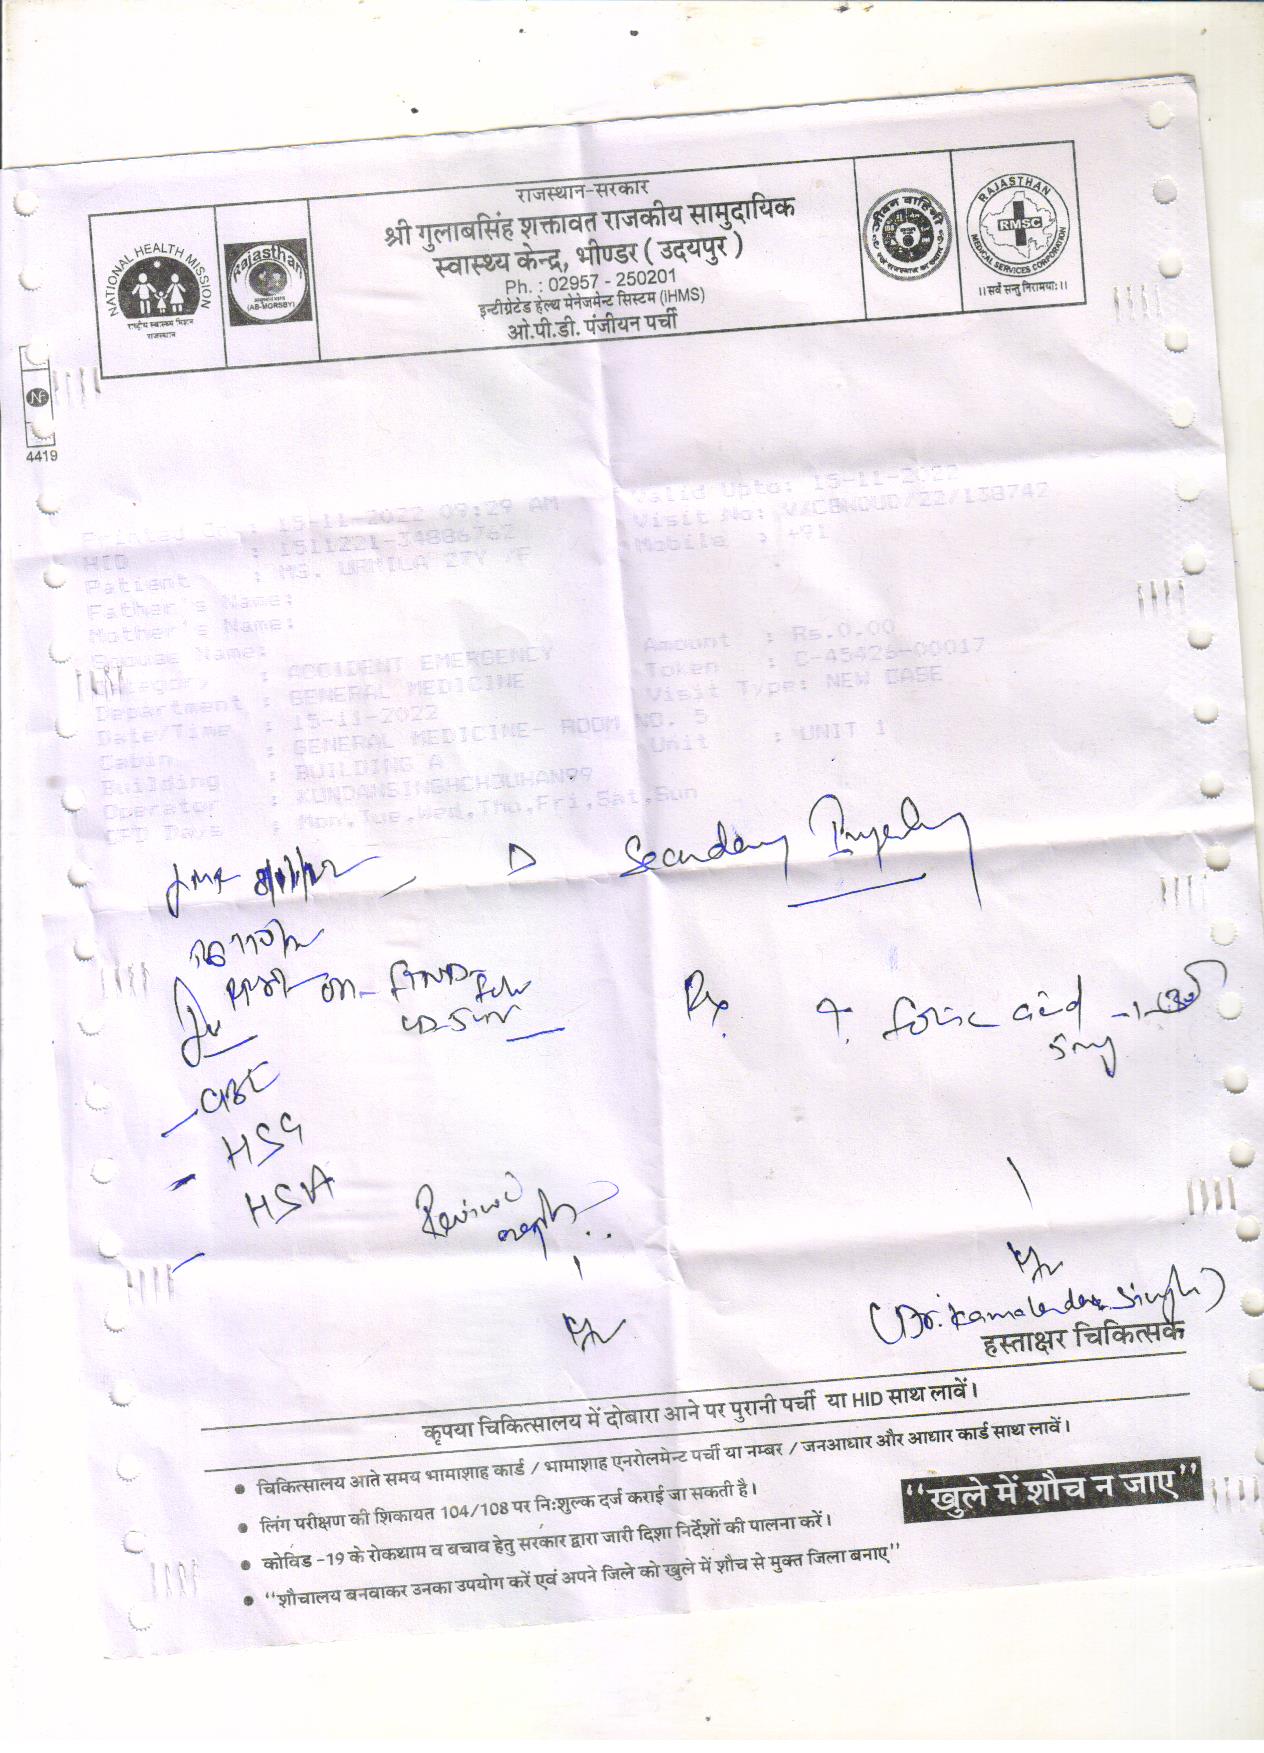 राजस्थान-सरकार
श्री गुलाबसिंह शक्तावत राजकीय सामुदायिक
स्वास्थ्य केन्द्र, भीण्डर ( उदयपुर )
Ph. : 02957 - 250201
इन्टीग्रेटेड हेल्थ मेनेजमेन्ट सिस्टम (IHMS)
ओ.पी.डी. पंजीयन पर्ची
NATIONAL HEALTH MISSION
राष्ट्रीय स्वास्थ्य मिशन
राजस्थान
Rajasthan
(AB-MGRSBY)
जीवन वाहिनी
RAJASTHAN
RMSC
MEDICAL SERVICES CORPORATION
।।सर्वे सन्तु निरामयाः।।
4419
Printed On : 15-11-2022 09:29 AM
Valid Upto: 15-11-2022
HID : 1511221-34886762
Visit No: V/CBNOUD/22/138742
Patient : MS. URMILA 27Y /F
Mobile : +91
Father's Name:
Mother's Name:
Spouse Name:
Amount : Rs.0.00
Category : ACCIDENT EMERGENCY
Token : C-45426-00017
Department : GENERAL MEDICINE
Visit Type: NEW CASE
Date/Time : 15-11-2022
Cabin : GENERAL MEDICINE- ROOM NO. 5
Unit : UNIT 1
Building : BUILDING A
Operator : KUNDANSINGHCHOUHAN99
OPD Days : Mon,Tue,Wed,Thu,Fri,Sat,Sun
8/11/22
Secondary
Rx T. folic acid
5mg
HSG
HSA
Review
(Dr. Kamalendra Singh)
हस्ताक्षर चिकित्सक
कृपया चिकित्सालय में दोबारा आने पर पुरानी पर्ची या HID साथ लावें।
• चिकित्सालय आते समय भामाशाह कार्ड / भामाशाह एनरोलमेन्ट पर्ची या नम्बर / जनआधार और आधार कार्ड साथ लावें।
• लिंग परीक्षण की शिकायत 104/108 पर निःशुल्क दर्ज कराई जा सकती है।
• कोविड -19 के रोकथाम व बचाव हेतु सरकार द्वारा जारी दिशा निर्देशों की पालना करें।
• "शौचालय बनवाकर उनका उपयोग करें एवं अपने जिले को खुले में शौच से मुक्त जिला बनाए"
"खुले में शौच न जाए"